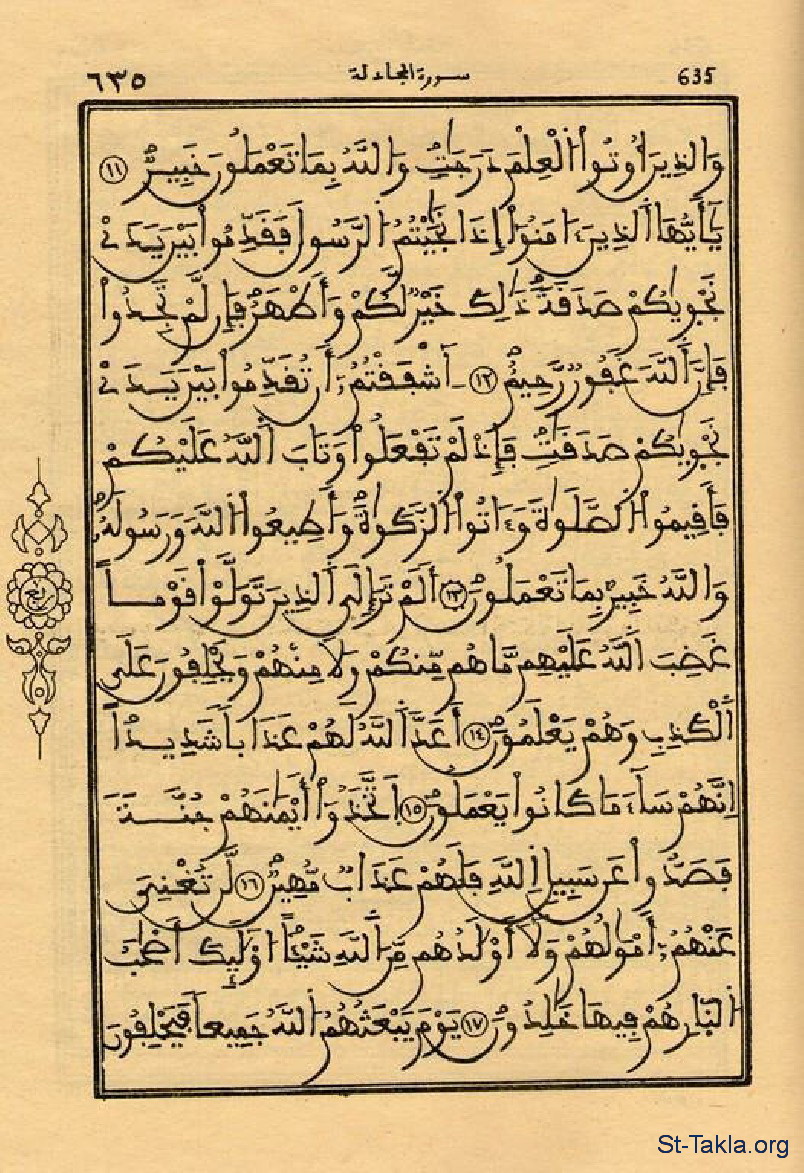 ٦٣٥ سورة المجادلة 635
وَالذِينَ أُوتُوا۟ اُلْعِلْمَ دَرَجَٰتٍ وَاللَّهُ بِمَا تَعْمَلُونَ خَبِيرٌ ١١
يَٰأَيُّهَا اَلذِينَ ءَامَنُوٓا۟ إِذَا نَٰجَيْتُمُ اُلرَّسُولَ فَقَدِّمُوا۟ بَيْنَ يَدَےْ
نَجْوٰيكُمْ صَدَقَةً ذَٰلِكَ خَيْرٌ لَّكُمْ وَأَطْهَرُ فَإِن لَّمْ تَجِدُوا۟
فَإِنَّ اَللَّهَ غَفُورٌ رَّحِيمٌ ١٢ ءَآشْفَقْتُمُۥٓ أَن تُقَدِّمُوا۟ بَيْنَ يَدَےْ
نَجْوٰيكُمْ صَدَقَٰتٍ فَإِذْ لَمْ تَفْعَلُوا۟ وَتَابَ اَللَّهُ عَلَيْكُمْ
فَأَقِيمُوا۟ اُلصَّلَوٰةَ وَءَاتُوا۟ اُلزَّكَوٰةَ وَأَطِيعُوا۟ اُللَّهَ وَرَسُولَهُۥ
وَاللَّهُ خَبِيرٌ بِمَا تَعْمَلُونَ ١٣ أَلَمْ تَرَ إِلَى اَلذِينَ تَوَلَّوْا۟ قَوْماً
غَضِبَ اَللَّهُ عَلَيْهِم مَّا هُم مِّنكُمْ وَلَا مِنْهُمْ وَيَحْلِفُونَ عَلَى
اَلْكَذِبِ وَهُمْ يَعْلَمُونَ ١٤ أَعَدَّ اَللَّهُ لَهُمْ عَذَاباً شَدِيداً
اِنَّهُمْ سَآءَ مَا كَانُوا۟ يَعْمَلُونَ ١٥ اَتَّخَذُوٓا۟ أَيْمَٰنَهُمْ جُنَّةً
فَصَدُّوا۟ عَن سَبِيلِ اِللَّهِ فَلَهُمْ عَذَابٌ مُّهِينٌ ١٦ لَّن تُغْنِيَ
عَنْهُمُۥٓ أَمْوَٰلُهُمْ وَلَآ أَوْلَٰدُهُم مِّنَ اَللَّهِ شَيْـٔاً اوْلَٰٓئِكَ أَصْحَٰبُ
اُلنّ۪ارِ هُمْ فِيهَا خَٰلِدُونَ ١٧ يَوْمَ يَبْعَثُهُمُ اُللَّهُ جَمِيعاً فَيَحْلِفُونَ
ربع
St-Takla.org